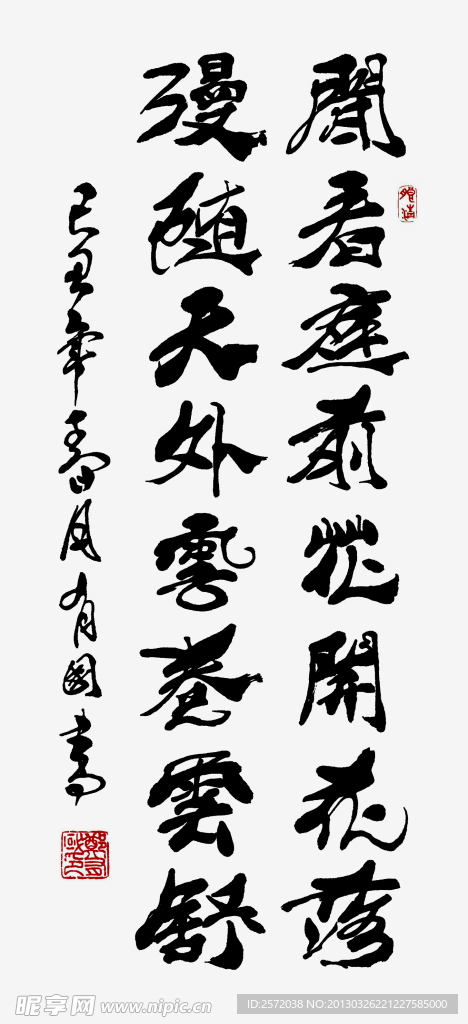 閒看庭前花開花落
漫随天外雲卷雲舒
己丑年春月有國書
昵享网 www.nipic.cn
ID:2572038 NO:20130326221227585000